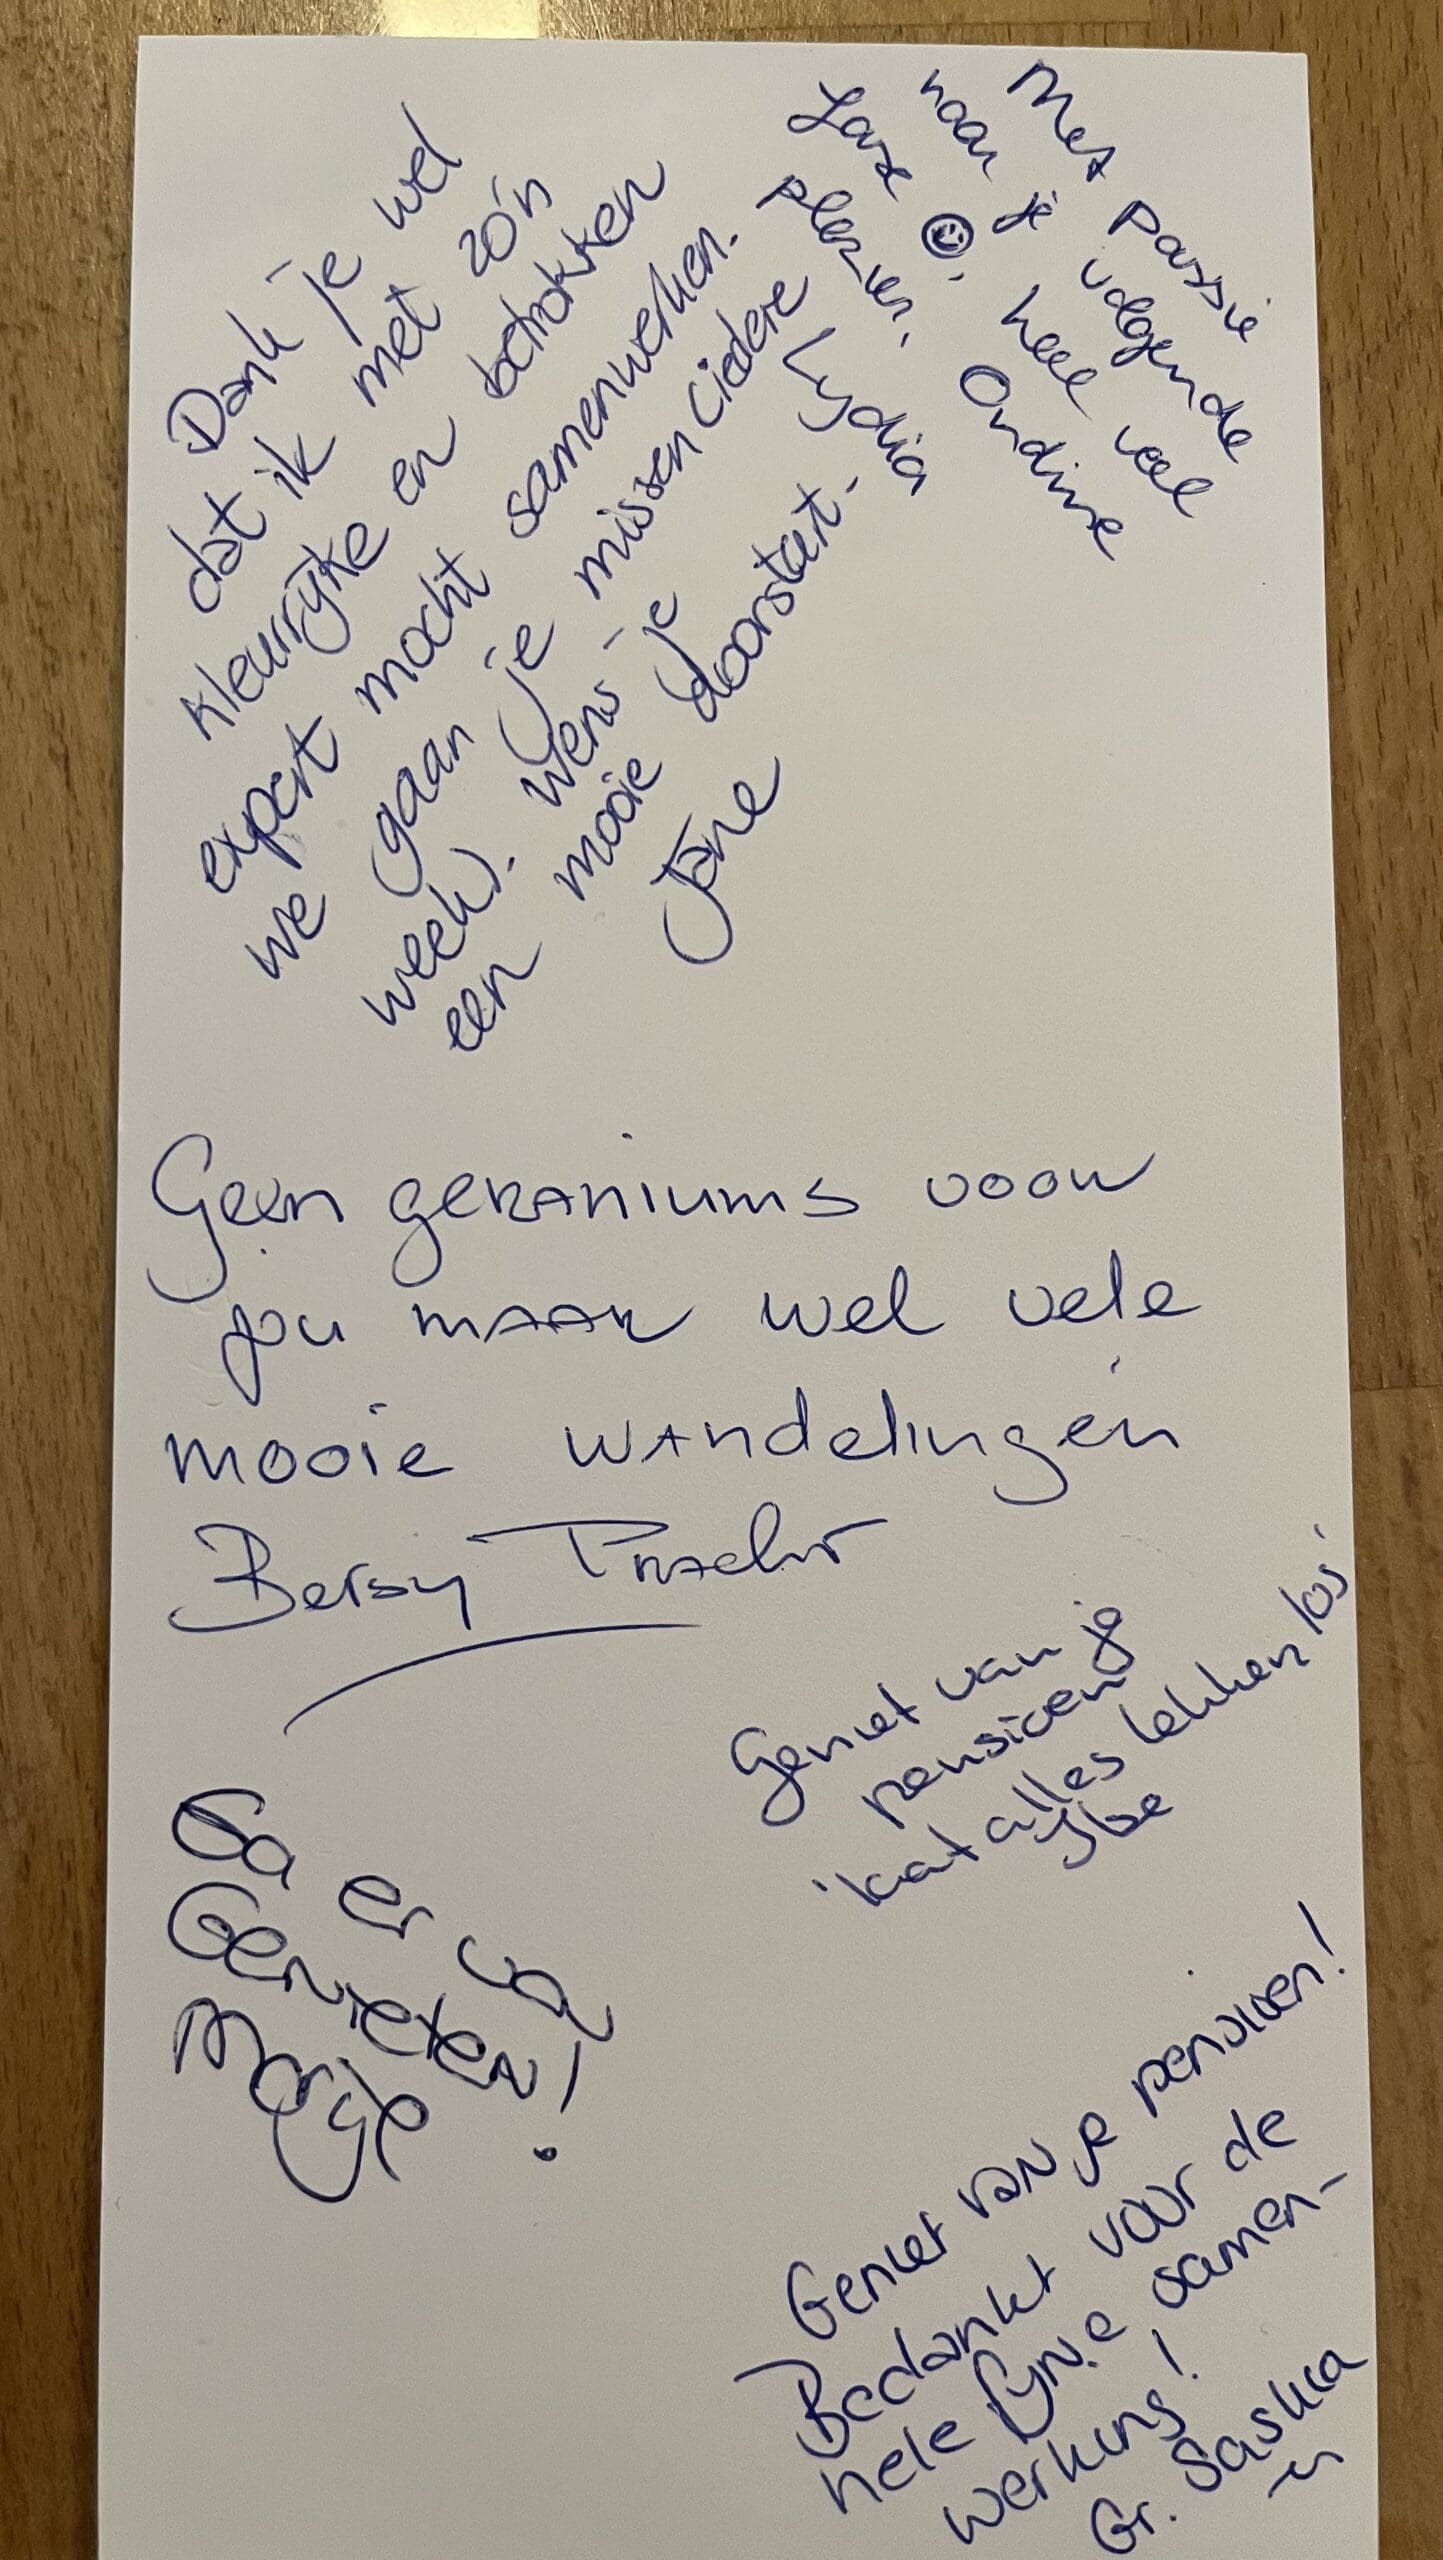 Dank je wel
dat ik met zo'n
kleurrijke en betrokken
expert mocht samenwerken.
we gaan je missen (iedere
week). wens je
een mooie doorstart.
Jane
Lydia
Met passie
naar je volgende
fase, heel veel
plezier. Ondine
Geen geraniums voor
jou maar wel vele
mooie wandelingen
Betsy
Geniet van je
pensioen
laat alles lekker los
Ybe
Ga er va/
Genieten!
Marije
Geniet van je pensioen!
Bedankt voor de
hele fijne samen-
werking!
Gr. Saskia